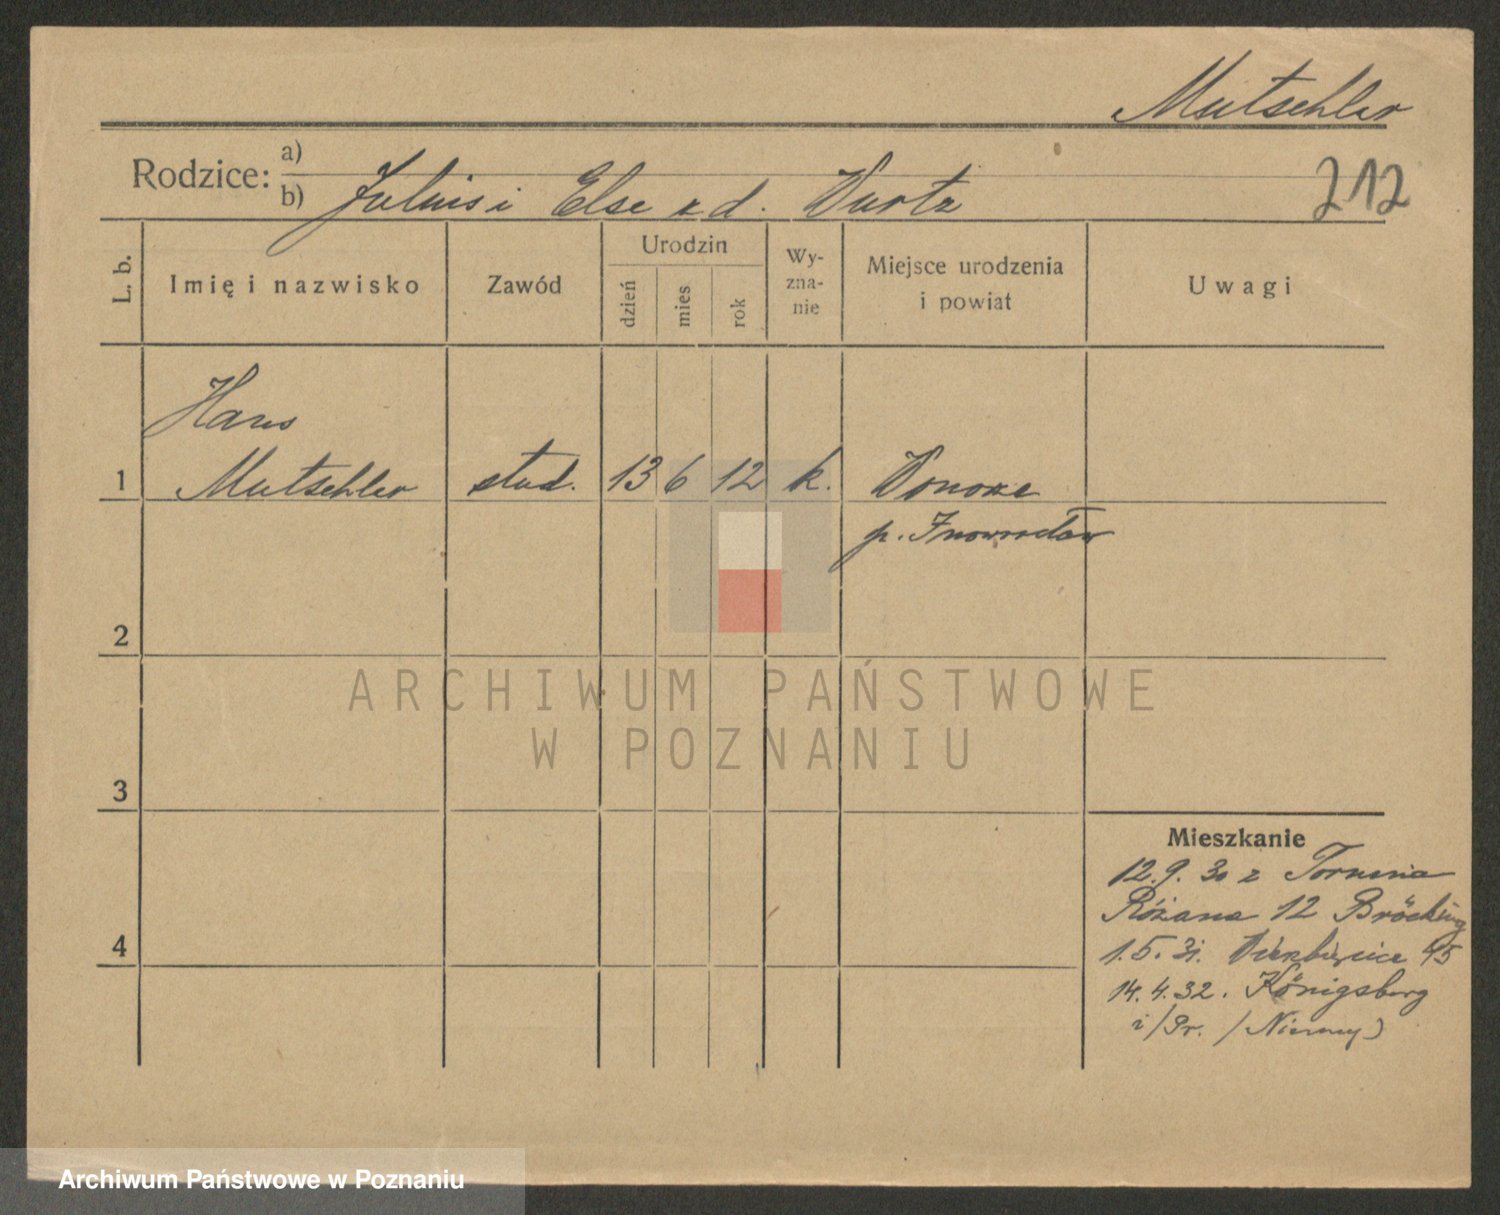 Mutschler
Rodzice: a)
b) Julius i Else z d. Wurtz
212
L. b.
Imię i nazwisko
Zawód
Urodzin
dzień
mies
rok
Wy-
zna-
nie
Miejsce urodzenia
i powiat
Uwagi
Hans
1 Mutschler stud. 13 6 12 k.
p. Inowrocław
2
3
4
ARCHIWUM PAŃSTWOWE
W POZNANIU
Mieszkanie
12.9.30 z Torunia
Różana 12 Bröcking
1.5.31. 45
14.4.32. Königsberg
i/Pr. /Niemcy)
Archiwum Państwowe w Poznaniu